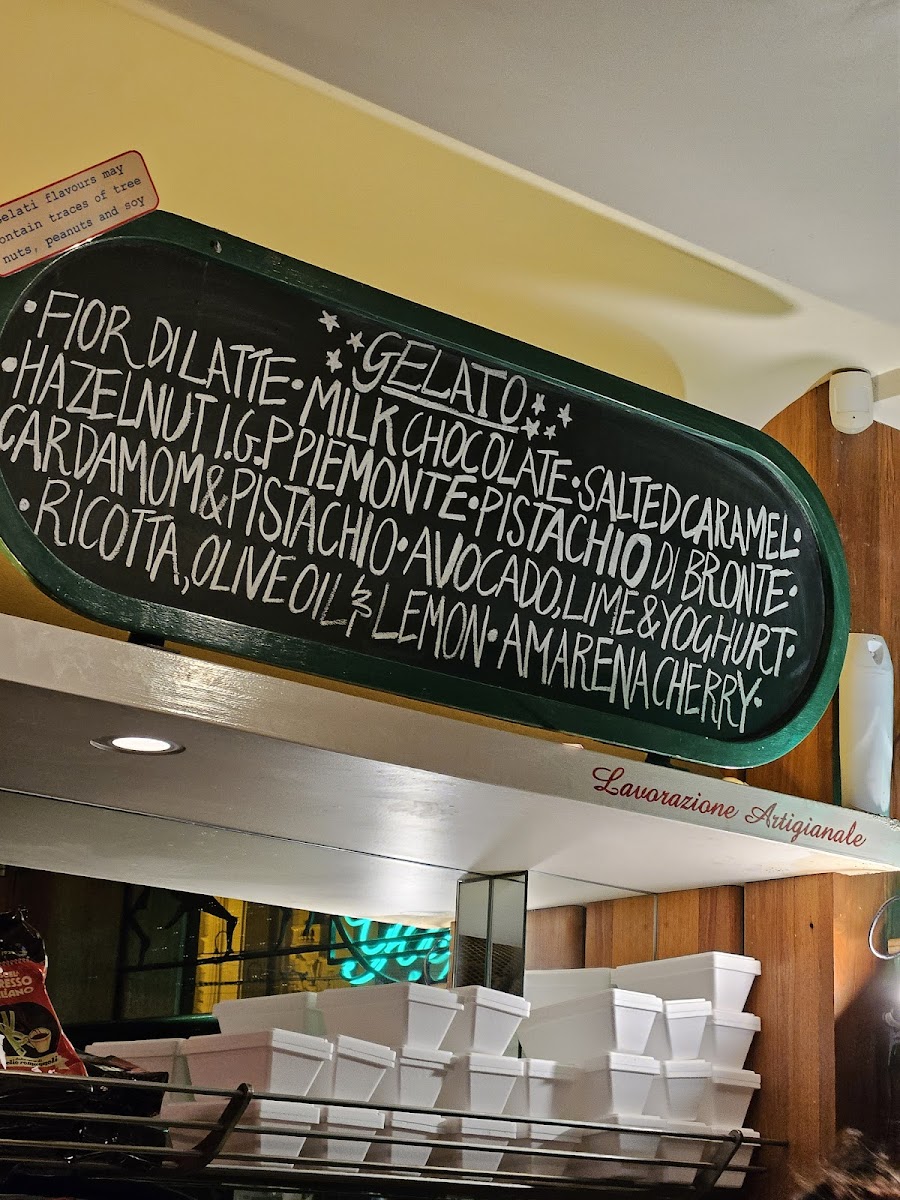 Gelati flavours may
contain traces of tree
nuts, peanuts and soy
GELATO
•FIOR DI LATTE•MILK CHOCOLATE•SALTED CARAMEL•
•HAZELNUT I.G.P PIEMONTE•PISTACHIO DI BRONTE•
CARDAMOM&PISTACHIO•AVOCADO,LIME&YOGHURT•
•RICOTTA,OLIVE OIL & LEMON•AMARENA CHERRY•
Lavorazione Artigianale